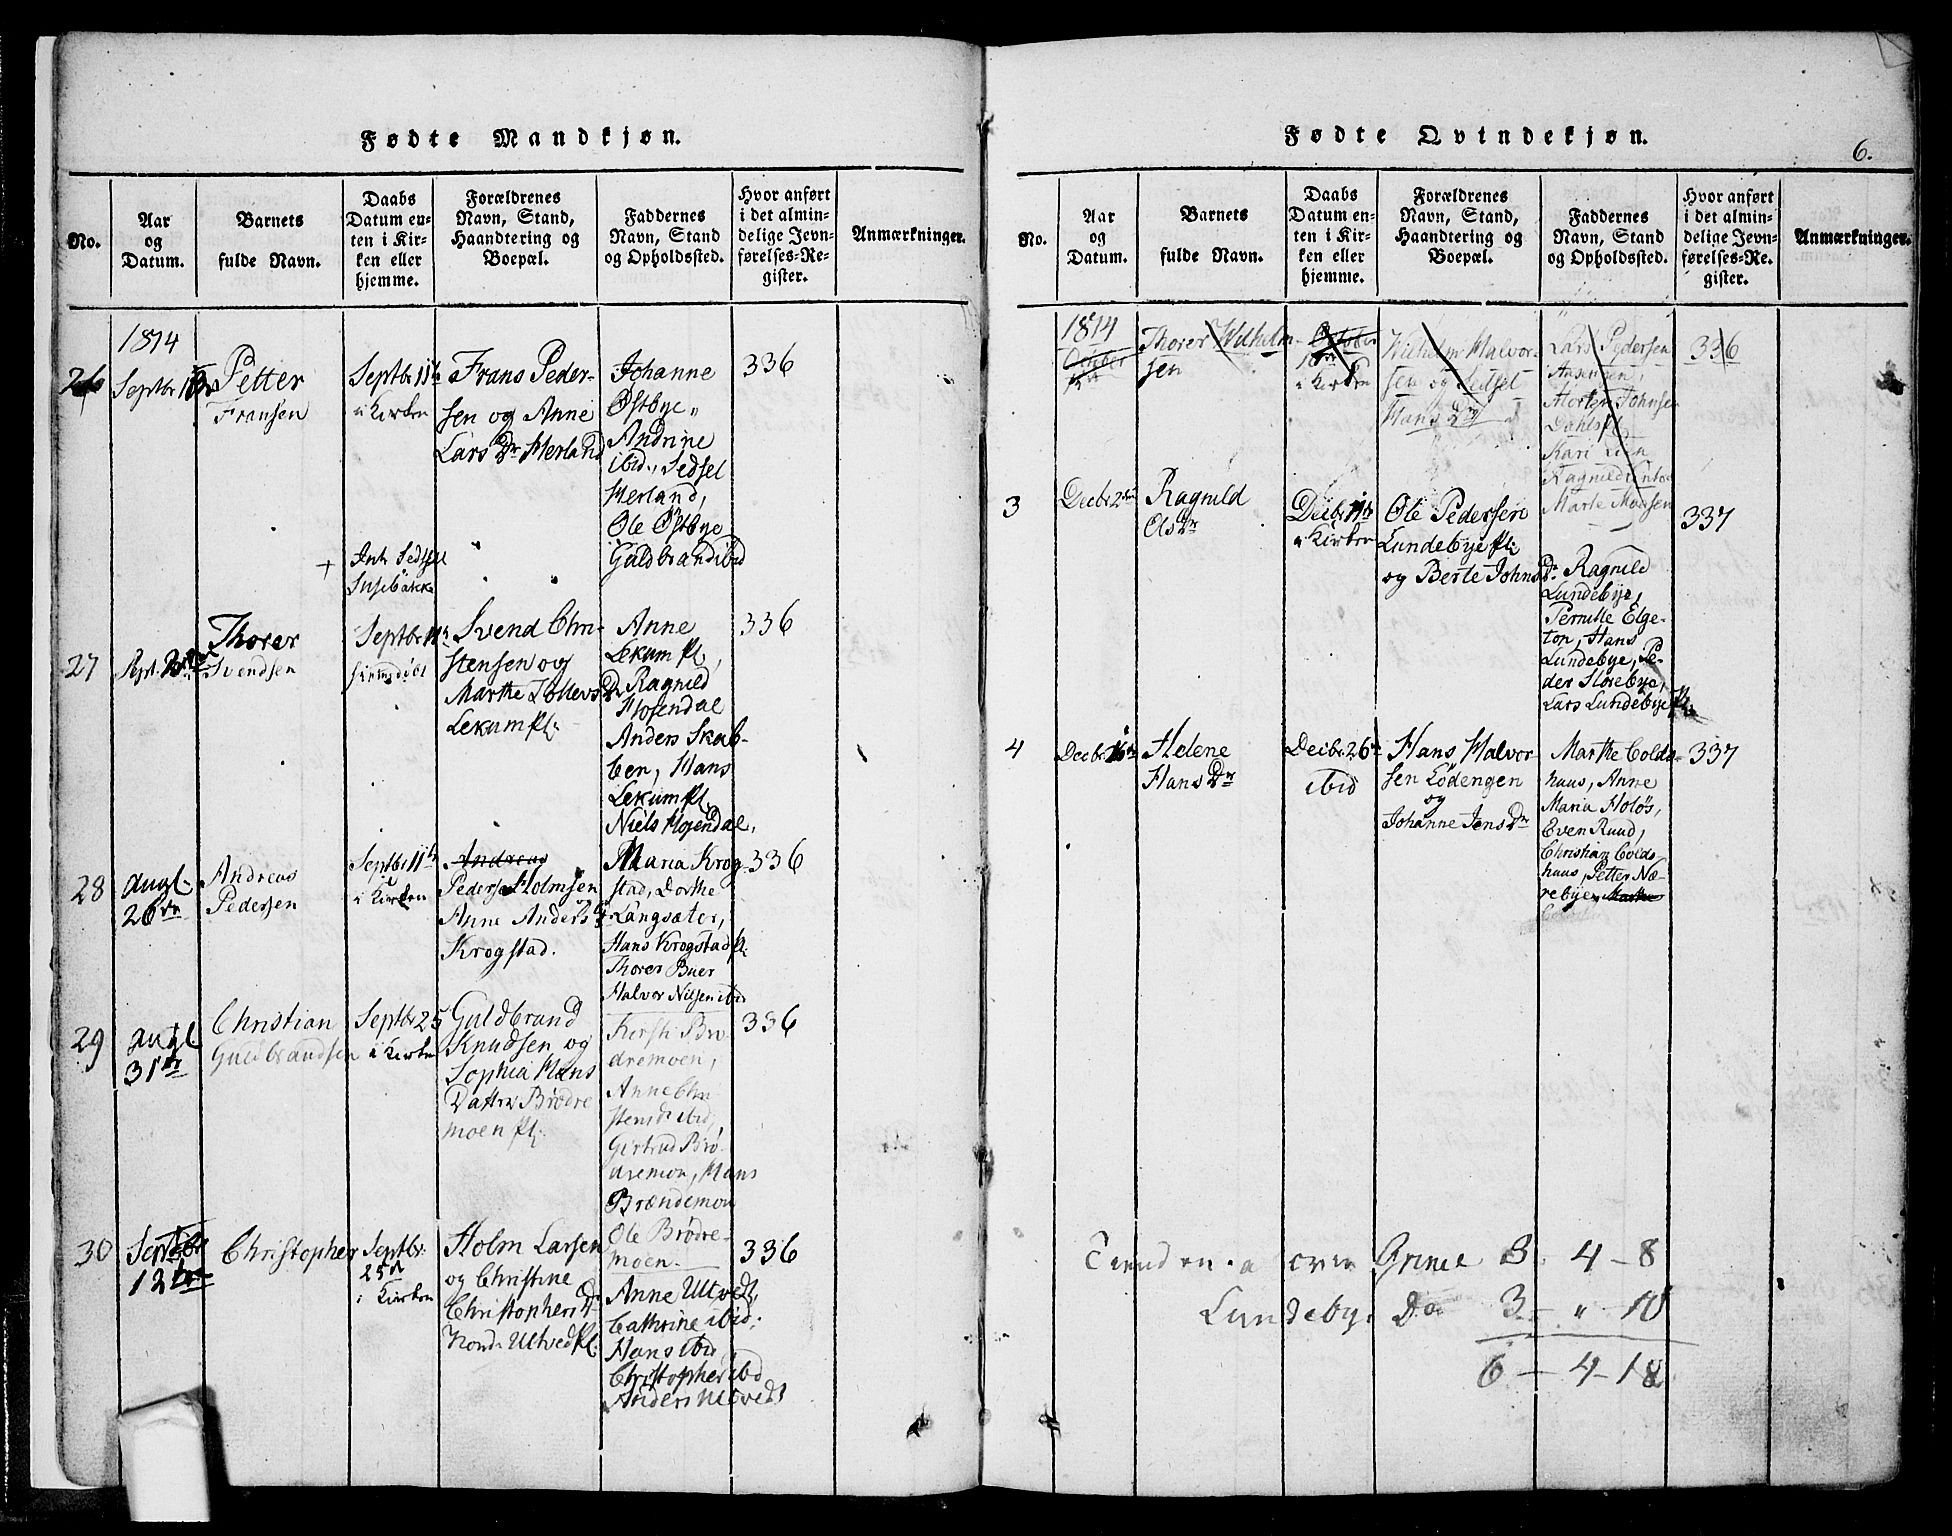 Fødte Mandkjøn.
No.
Aar
og
Datum.
Barnets
fulde Navn.
Daabs
Datum en-
ten i Kir-
ken eller
hjemme.
Forældrenes
Navn, Stand,
Haandtering og
Boepæl.
Faddernes
Navn, Stand
og Opholdssted.
Hvor anført
i det almin-
delige Jevn-
førelses-Re-
gister.
Anmærkninger.
1814
26
Septbr
Petter
Fransen
Septbr 11te
i Kirken
Frans Peder-
sen og Anne
Lars Dr Herland
Johanne
Østbye,,
Andrine
ibid., Sedsel
Herland,
Ole Østbye
Guldbrand ibid
336
27
Thorer
Svendsen
Septbr 11te
Svend Chri-
stensen og
Marthe Tollevs Dr
Lekum Pl.
Anne
Lekum Pl,
Ragnild
Hosendal
Anders Skab-
ben, Hans
Lekum Pl,
Niels Hosendal,
336
28
Augl.
26de
Andreas
Pedersen
Septbr 11te
i Kirken
Andreas
Peders Holmsen
Anne Anders Dr
Krogstad.
Maria Krog-
stad, Dorthe
Langsæter,
Hans Krogstad
Thorer Buer
Halvor Nilsen ibid
336
29
Augl
31te
Christian
Guldbrandsen
Septbr 25
i Kirken
Guldbrand
Knudsen og
Sophia Hans
Datter Brödre
moen Pl.
Kersti Brö-
dremoen,
Anne Chri
stensd ibid,
Girtrud Brö
dremon, Hans
Brændemon
Ole Brödre-
moen.
336
30
Septbr
12te
Christopher
Septbr.
25d
i Kirken
Holm Larsen
og Christine
Christophers Dr
Nond. Ultved Pl.
Anne Ultvedt,
Cathrine ibid.
Hans ibid
Christopher ibid
Anders Ultvedt
336
Fødte Qvindekjøn.
6.
No.
Aar
og
Datum.
Barnets
fulde Navn.
Daabs
Datum en-
ten i Kir-
ken eller
hjemme.
Forældrenes
Navn, Stand,
Haandtering og
Boepæl.
Faddernes
Navn, Stand
og Opholdssted.
Hvor anført
i det almin-
delige Jevn-
førelses-Re-
gister.
Anmærkninger.
1814
October
Thorer Wilhelm-
sen
October
i Kirken
Wilhelm Halvor-
sen og Sedsel
Hans Dr
Lars Pedersen
Morten Johnsen
Kari
Marte Madsen
336
3
Decbr 2den
Ragnild
Ols Dr
Decbr 11te
i Kirken
Ole Pedersen
Lundebye Pl.
og Berte Johns Dr
Ragnild
Lundebye,
Pernille Elge-
ton, Hans
Lundebye, Pe-
der Storebye,
Lars Lundebye Pl.
337
4
Decbr 16de
Helene
Hans Dr
Decbr 26de
ibid
Hans Halvor
sen Lödengen
og
Johanne Jens Dr
Marthe Colds-
huus, Anne
Maria Holös,
Even Ruud,
Christian Colds
huus, Petter Næ-
rebye,
337
Grinde 3. 4 - 8
Lundeby. Do 3 - " 10
6 - 4 - 18